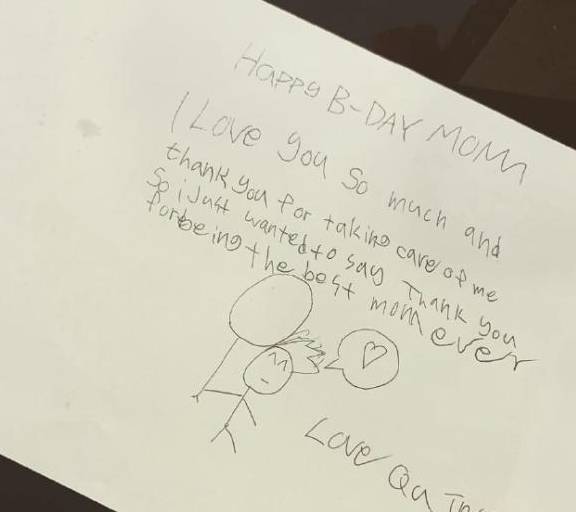 Happy B-DAY MOM
I Love you So much and
thank you for taking care of me
So i Just wanted to say Thank you
for being the best mom ever
Love Qu